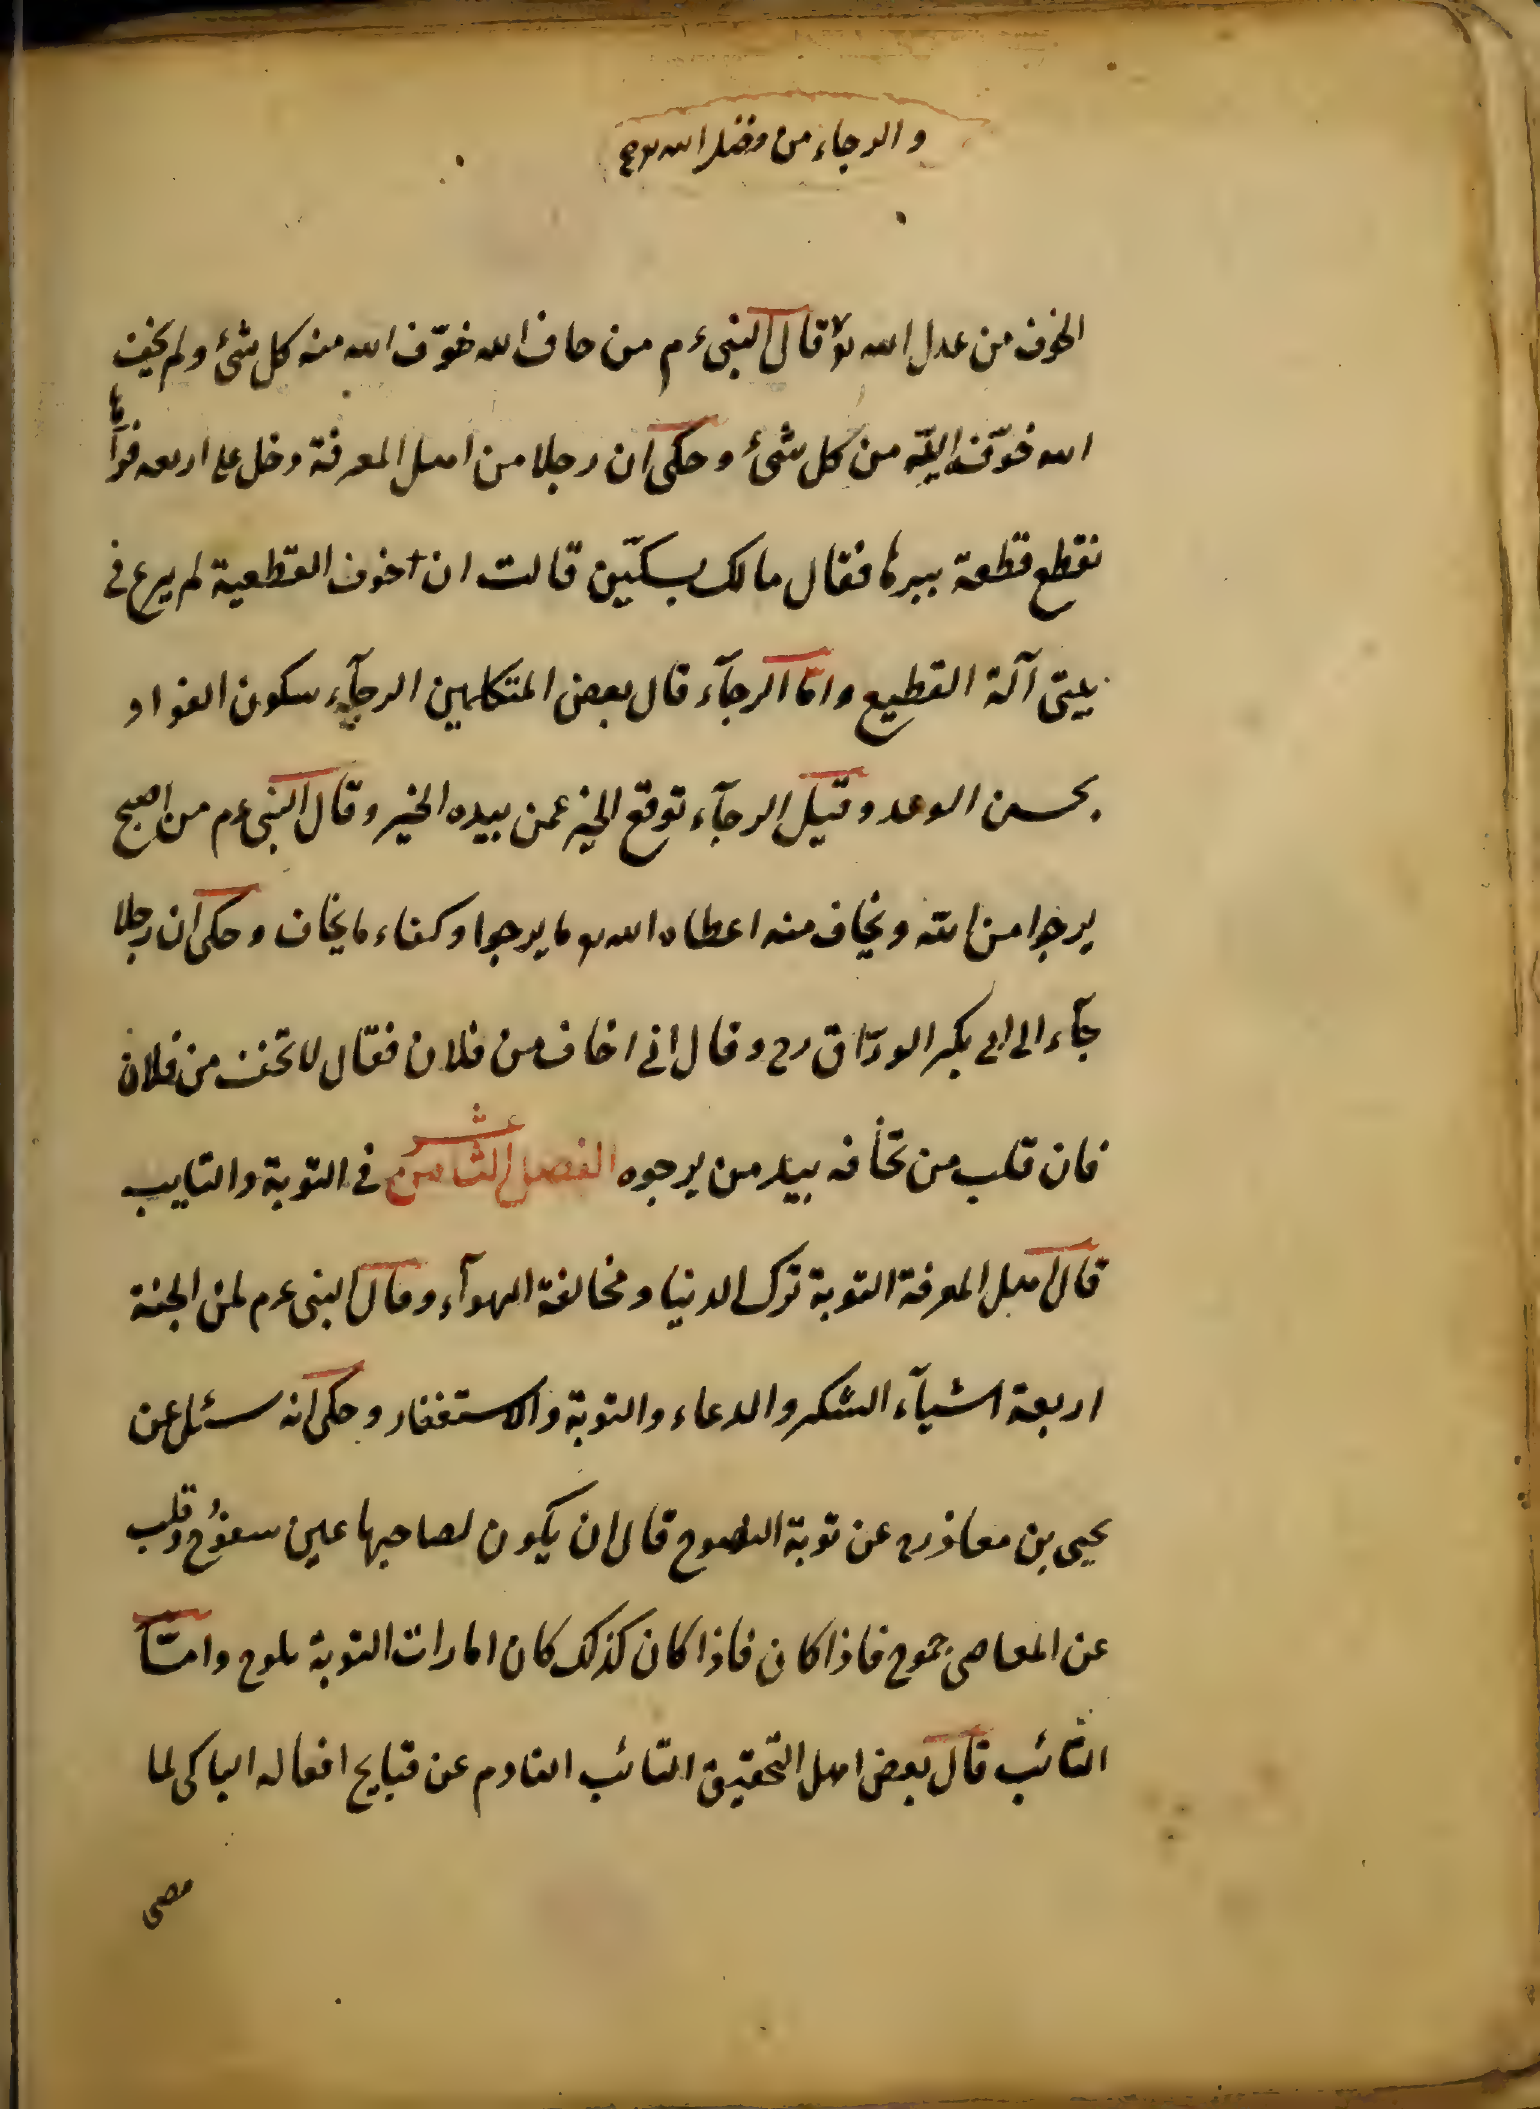 والرجاء من فضل الله تع
الخوف من عدل الله تع قال النبى عم من خاف الله خوّف الله منه كل شئ ولم يخف
الله خوّفه الله من كل شئ وحكى ان رجلا من اهل المعرفة دخل على اربعه فرآها
تقطع قطعة بيرها فقال مالك بسكّين قالت ان خوف القطعية لم يدع فى
بيتى آلة القطيع وامّا الرجآء قال بعض المتكلمين الرجآء سكون الفواد
بحسن الوعد وقيل الرجآء توقع الخير عمن بيده الخير وقال النبى عم من اصبح
يرجوا من الله ويخاف منه اعطاه الله تع ما يرجوا وكفاء ما يخاف وحكى ان رجلا
جآء الى ابى بكر الورّاق رح وقال انى اخاف من فلان فقال لا تخف من فلان
فان قلب من تخافه بيد من يرجوه الفصل الثامن عشر فى التوبة والتايب
قال اهل المعرفة التوبة ترك الدنيا ومخالفة الهوآء وقال النبى عم لمن الجنة
اربعة اشيآء الشكر والدعاء والتوبة والاستغفار وحكى انه سئل عن
يحيى بن معاذ رح عن توبة النصوح قال ان يكون لصاحبها عين سفوح وقلب
عن المعاصى جموح فاذا كان فاذا كان كذلك كان امارات التوبة يلوح وامّا
التائب قال بعض اهل التحقيق التائب النادم عن قبايح افعاله الباكى لما
مضى